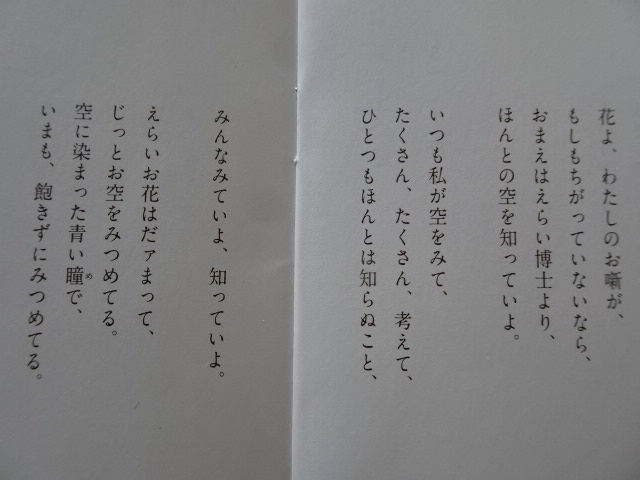 花よ、わたしのお噺が、
もしもちがっていないなら、
おまえはえらい博士より、
ほんとの空を知っていよ。
いつも私が空をみて、
たくさん、たくさん、考えて、
ひとつもほんとは知らぬこと、
みんなみていよ、知っていよ。
えらいお花はだァまって、
じっとお空をみつめてる。
空に染まった青い瞳で、
め
いまも、飽きずにみつめてる。